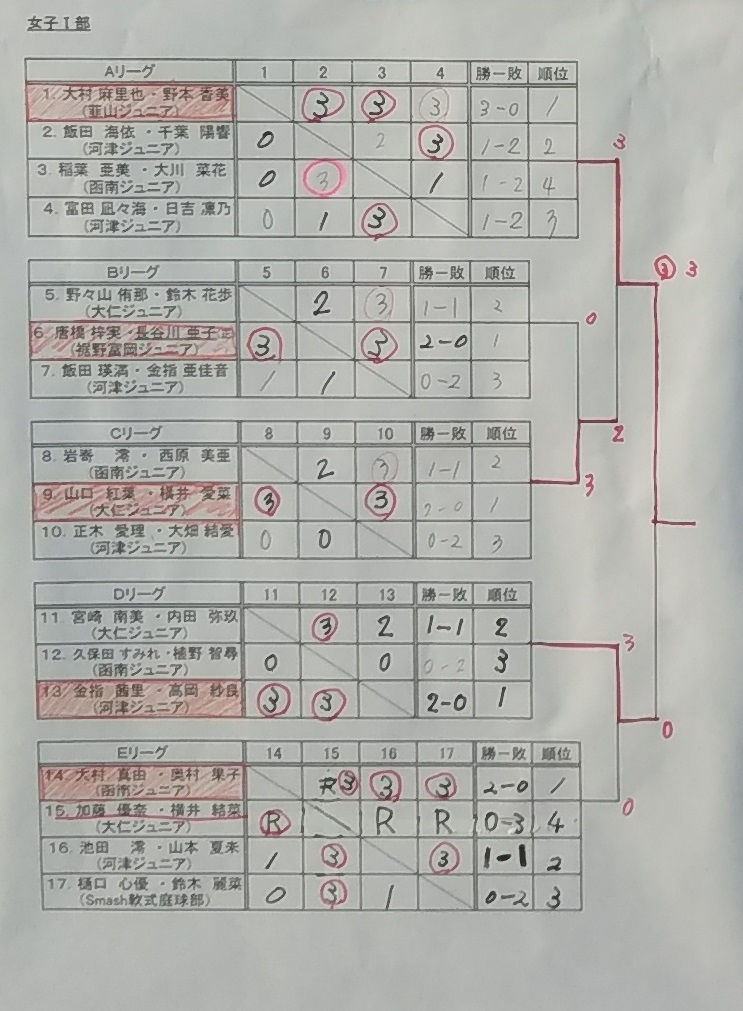 女子Ⅰ部
Aリーグ 1 2 3 4 勝ー敗 順位
1. 大村 麻里也・野本 香美 ③ ③ ③ 3-0 1
(韮山ジュニア)
2. 飯田 海依・千葉 陽響 0 2 ③ 1-2 2
(河津ジュニア)
3. 稲葉 亜美・大川 菜花 0 ③ 1 1-2 4
(函南ジュニア)
4. 富田 凪々海・日吉 凛乃 0 1 ③ 1-2 3
(河津ジュニア)
3
③ 3
Bリーグ 5 6 7 勝ー敗 順位
5. 野々山 侑那・鈴木 花歩 2 ③ 1-1 2
(大仁ジュニア)
0
6. 唐橋 梓実・長谷川 亜子 ③ ③ 2-0 1
(裾野富岡ジュニア)
7. 飯田 瑛満・金指 亜佳音 1 1 0-2 3
(河津ジュニア)
Cリーグ 8 9 10 勝ー敗 順位
2
8. 岩嵜 澪・西原 美亜 2 ③ 1-1 2
(函南ジュニア)
3
9. 山口 紅葉・横井 愛菜 ③ ③ 2-0 1
(大仁ジュニア)
10. 正木 愛理・大畑 結愛 0 0 0-2 3
(河津ジュニア)
Dリーグ 11 12 13 勝ー敗 順位
11. 宮崎 南美・内田 弥玖 ③ 2 1-1 2
(大仁ジュニア)
3
12. 久保田 すみれ・植野 智尋 0 0 0-2 3
(函南ジュニア)
13. 金指 茜里・高岡 紗良 ③ ③ 2-0 1
(河津ジュニア)
0
Eリーグ 14 15 16 17 勝ー敗 順位
14. 大村 真由・奥村 果子 R③ ③ ③ 2-0 1
(函南ジュニア)
0
15. 加藤 優奈・横井 結菜 R R R 0-3 4
(大仁ジュニア)
16. 池田 澪・山本 夏来 1 ③ ③ 1-1 2
(河津ジュニア)
17. 樋口 心優・鈴木 麗菜 0 ③ 1 0-2 3
(Smash軟式庭球部)